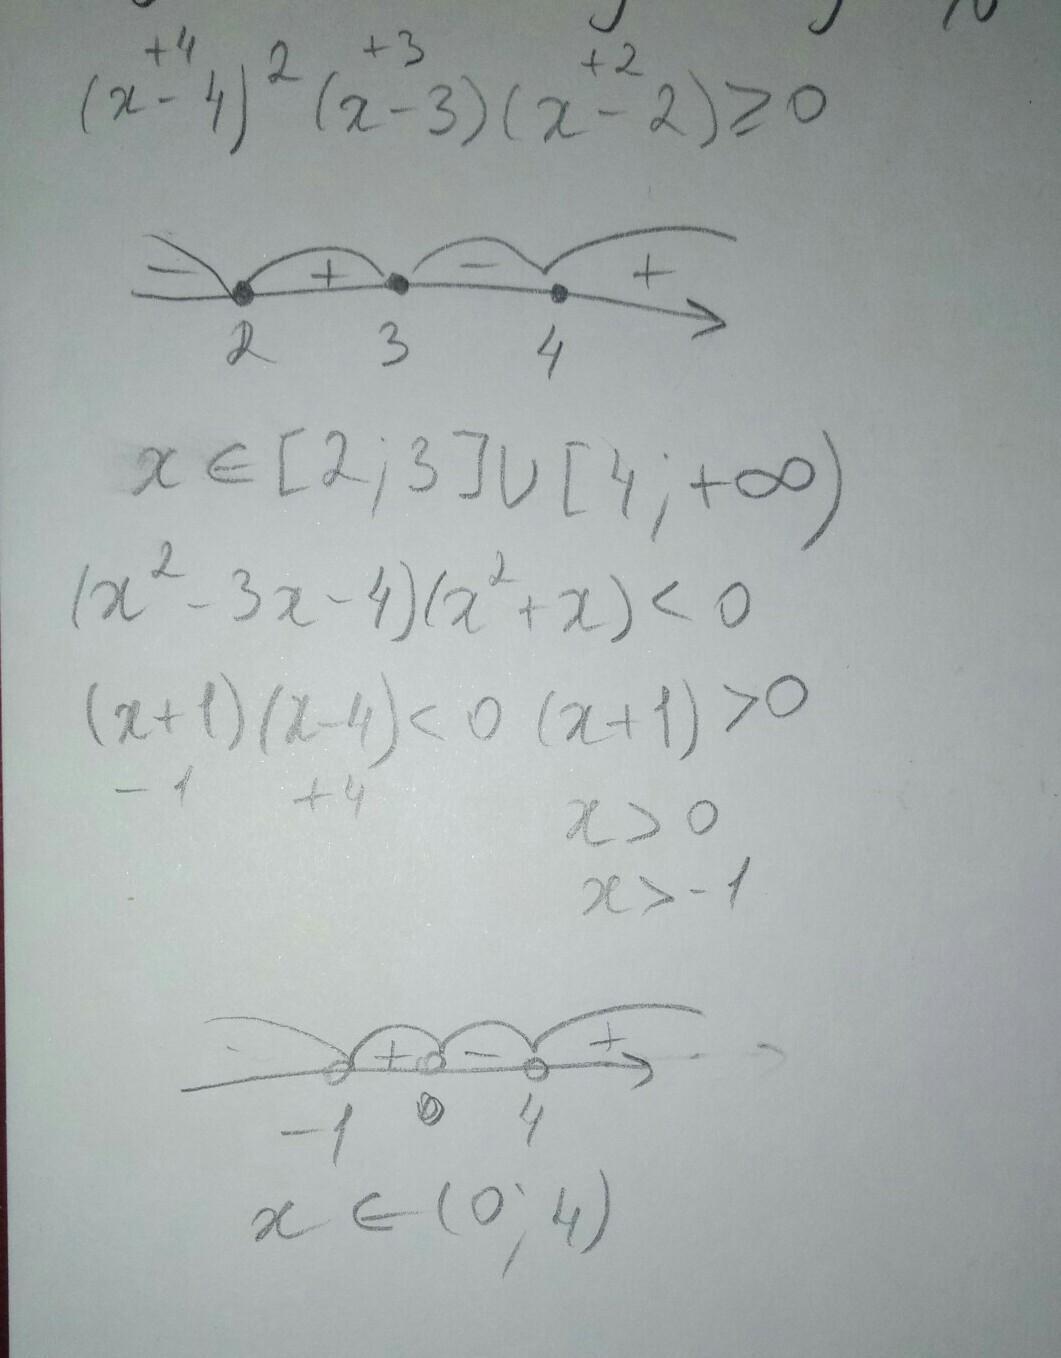 +4 +3 +2
(x-4)² (x-3)(x-2)≥0
- + - +
2 3 4
x∈[2;3]∪[4;+∞)
(x²-3x-4)(x²+x)<0
(x+1)(x-4)<0 (x+1)>0
-1 +4
x>0
x>-1
- + - +
-1 0 4
x∈(0;4)